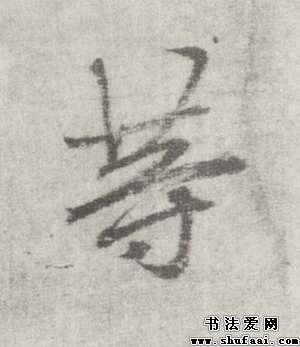 等
书法爱网
www.shufaai.com